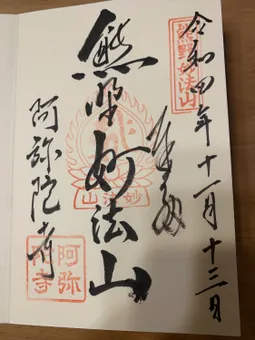 令和四年十一月十三日
奉拝
熊野妙法山
阿弥陀寺
熊野妙法山
妙法山
阿弥陀寺